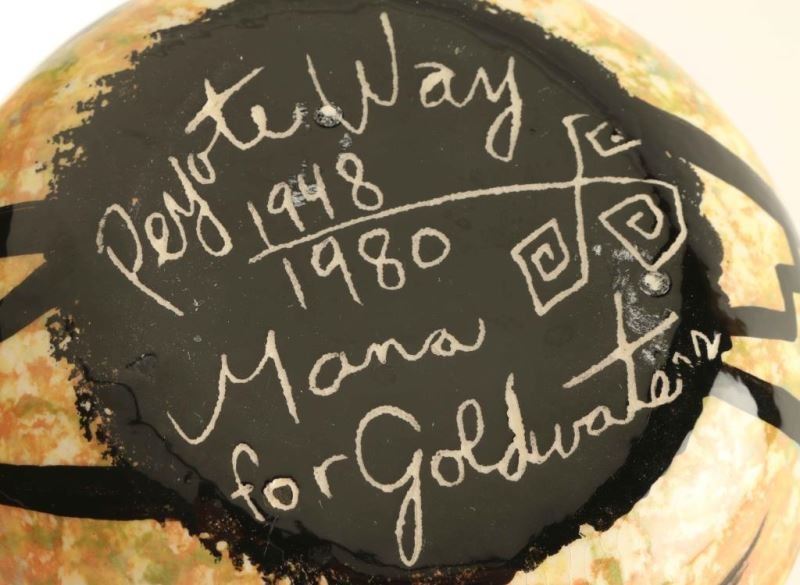 Peyote Way
1948
1980
Mana
for Goldwater